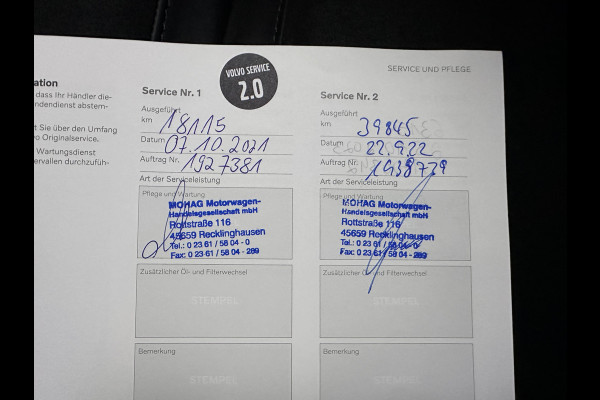 SERVICE UND PFLEGE
ation
dass Ihr Händler die-
ndendienst abstem-
t Sie über den Umfang
o Originalservice.
Wartungsdienst
ervallen durchzufüh-
VOLVO SERVICE
2.0
Service Nr. 1
Ausgeführt
km 18115
Datum 07.10.2021
Auftrag Nr. 1927381
Art der Serviceleistung
Pflege und Wartung
MOHAG Motorwagen-
Handelsgesellschaft mbH
Rottstraße 116
45659 Recklinghausen
Tel.: 0 23 61 / 58 04 - 0
Fax: 0 23 61 / 58 04 - 269
Zusätzlicher Öl- und Filterwechsel
STEMPEL
Bemerkung
STEMPEL
Service Nr. 2
Ausgeführt
km 39845
Datum 22.9.22
Auftrag Nr. 1938739
Art der Serviceleistung
Pflege und Wartung
MOHAG Motorwagen-
Handelsgesellschaft mbH
Rottstraße 116
45659 Recklinghausen
Tel.: 0 23 61 / 58 04 - 0
Fax: 0 23 61 / 58 04 - 269
Zusätzlicher Öl- und Filterwechsel
STEMPEL
Bemerkung
STEMPEL